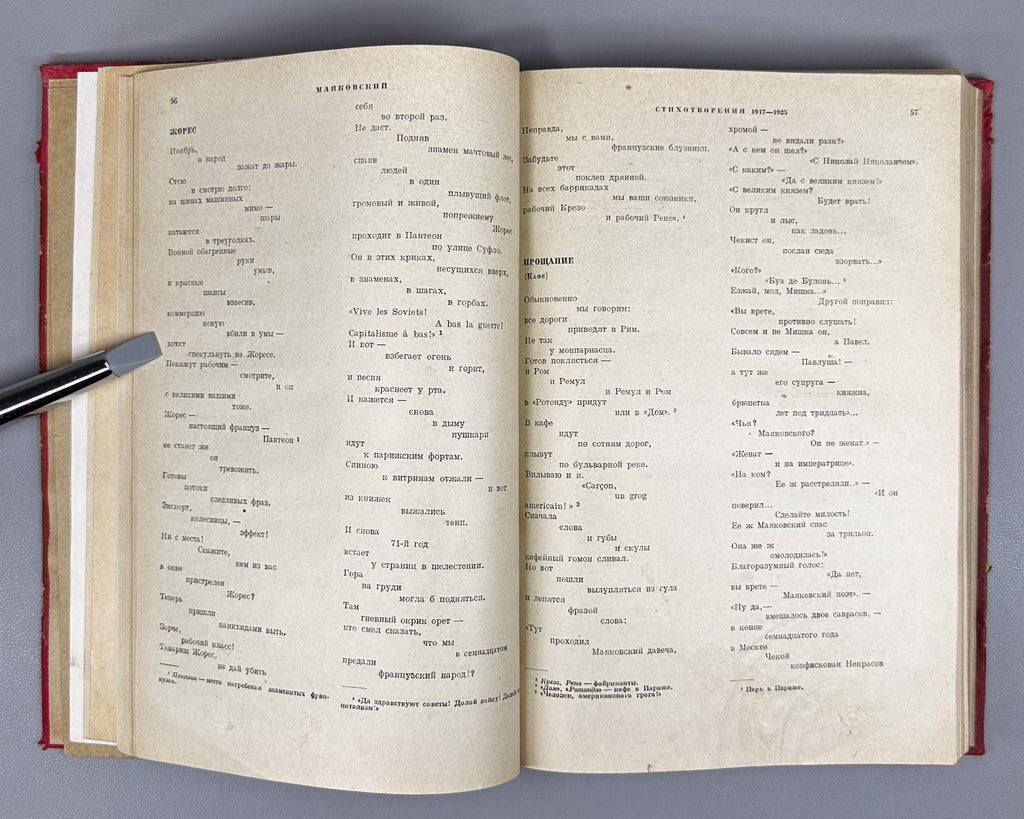 56
МАЯКОВСКИЙ
ЖОРЕС
Ноябрь,
а народ
зажат до жары.
Стою
и смотрю долго:
на шинах машинных
мимо —
шары
катаются
в треуголках.
Войной обагренные
руки
умыв,
и красные
шансы
взвесив,
коммерцию
новую
вбили в умы —
хотят
спекульнуть на Жоресе.
Покажут рабочим —
смотрите,
и он
с великими нашими
тоже.
Жорес —
настоящий француз —
Пантеон ¹
не станет же
он
тревожить.
Готовы
потоки
слезливых фраз.
Экскорт,
колесницы, —
эффект!
Ни с места!
Скажите,
кем из вас
в окне
пристрелен
Жорес?
Теперь
пришли
панихидами выть,
Зорче,
рабочий класс!
Товарищ Жорес,
не дай убить
¹ Пантеон — место погребения знаменитых французов.
себя
во второй раз.
Не даст.
Подняв
знамен мачтовый лес,
спаяв
людей
в один
плывущий флот,
громовый и живой,
попрежнему
Жорес
проходит в Пантеон
по улице Суфло.
Он в этих криках,
несущихся вверх,
в знаменах,
в шагах,
в горбах,
«Vive les Soviets!
A bas la guerre!
Capitalisme à bas!» ¹
И вот —
взбегает огонь
и горит,
и песня
краснеет у рта.
И кажется —
снова
в дыму
пушкари
идут
к парижским фортам.
Спиною
к витринам отжали —
и вот
из книжек
выжались
тени.
И снова
71-й год
встает
у страниц в шелестении.
Гора
на груди
могла б подняться.
Там
гневный окрик орет —
кто смел сказать,
что мы
в семнадцатом
предали
французский народ!?
¹ «Да здравствуют советы! Долой войну! Долой
питализм!»
СТИХОТВОРЕНИЯ 1917—1925
57
Неправда,
мы с вами,
французские блузники.
Забудьте
этот
поклеп дрянной.
На всех баррикадах
мы ваши союзники,
рабочий Крезо
и рабочий Рено». ¹
ПРОЩАНИЕ
(Кафе)
Обыкновенно
мы говорим:
все дороги
приводят в Рим.
Не так
у монпарнасца.
Готов поклясться —
и Ром
и Ремул
и Ремул и Ром
в «Ротонду» придут
или в «Дом». ²
В кафе
идут
по сотням дорог,
плывут
по бульварной реке.
Вплываю и я.
«Garçon,
un grog
americain!» ³
Сначала
слова
и губы
и скулы
кафейный гомон сливал.
Но вот
пошли
вылупляться из гула
и лепятся
фразой
слова:
«Тут
проходил
Маяковский давеча,
¹ Крезо, Рено — фабриканты.
² «Дом», «Ротонда» — кафе в Париже.
³ «Человек, американского грога!»
хромой —
не видали рази?»
«А с кем он шел?»
«С Николай Николаичем».
«С каким?» —
«Да с великим князем!»
«С великим князем?
Будет врать!
Он кругл
и лыс,
как ладонь...
Чекист он,
послан сюда
взорвать...»
«Кого?»
«Буа де Булонь... ¹
Езжай, мол, Мишка...»
Другой поправил:
«Вы врете,
противно слушать!
Совсем и не Мишка он,
а Павел.
Бывало сядем —
Павлуша! —
а тут же
его супруга —
княжна,
брюнетка
лет под тридцать»...
«Чья?
Маяковского?
Он не женат.» —
«Женат —
и на императрице».
«На ком?
Ее ж расстреляли..» —
«И он
поверил...
Сделайте милость!
Ее ж Маяковский спас
за трильон.
Она же ж
омолодилась!»
Благоразумный голос:
«Да нет,
вы врете —
Маяковский поэт». —
«Ну да,—
вмешалось двое саврасов, —
в конце
семнадцатого года
в Москве
Чекой
конфискован Некрасов
¹ Парк в Париже.